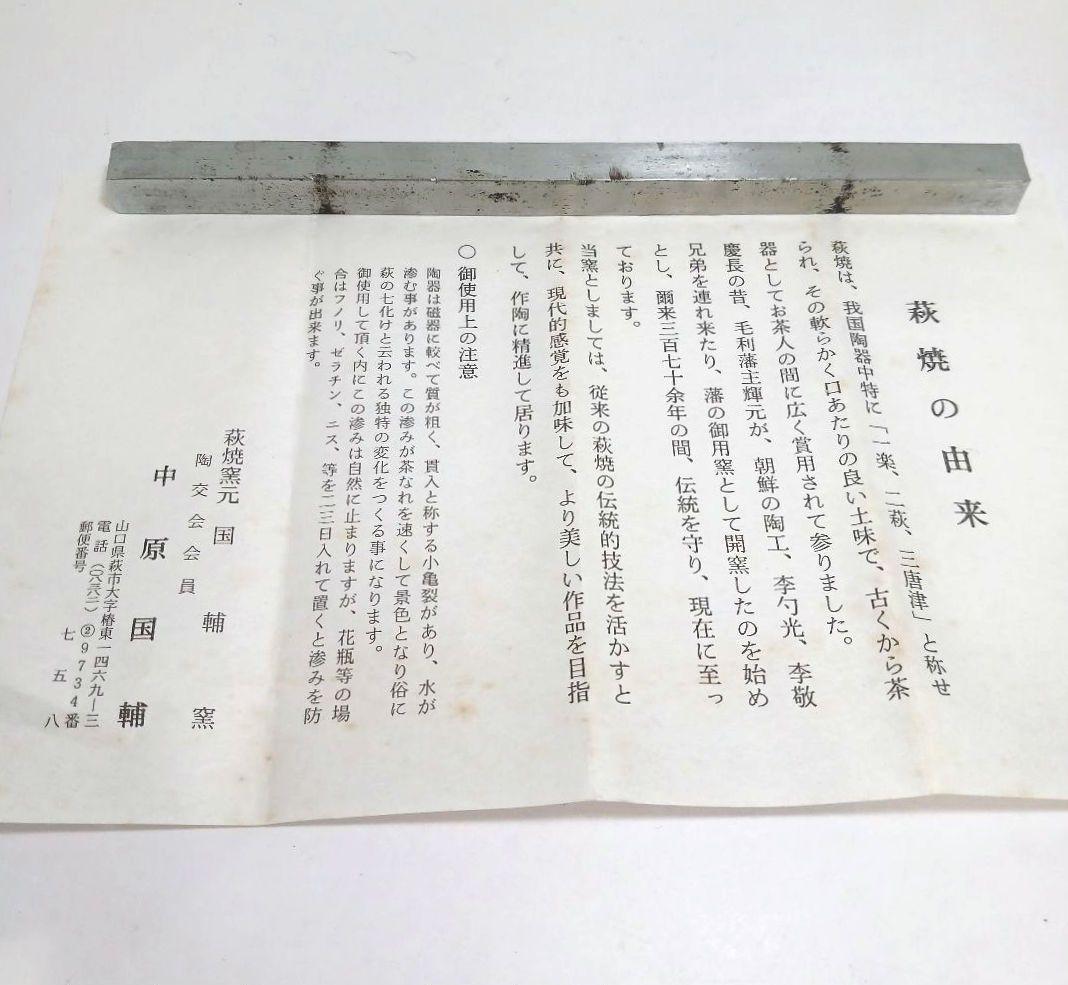 萩焼の由来
萩焼は、我国陶器中特に「一楽、二萩、三唐津」と称せ
られ、その軟らかく口あたりの良い土味で、古くから茶
器としてお茶人の間に広く賞用されて参りました。
慶長の昔、毛利藩主輝元が、朝鮮の陶工、李勺光、李敬
兄弟を連れ来たり、藩の御用窯として開窯したのを始め
とし、爾来三百七十余年の間、伝統を守り、現在に至っ
ております。
当窯としましては、従来の萩焼の伝統的技法を活かすと
共に、現代的感覚をも加味して、より美しい作品を目指
して、作陶に精進して居ります。
○御使用上の注意
陶器は磁器に較べて質が粗く、貫入と称する小亀裂があり、水が
滲む事があります。この滲みが茶なれを速くして景色となり俗に
萩の七化けと云われる独特の変化をつくる事になります。
御使用して頂く内にこの滲みは自然に止まりますが、花瓶等の場
合はフノリ、ゼラチン、ニス、等を二三日入れて置くと滲みを防
ぐ事が出来ます。
萩焼窯元 国輔窯
陶交会会員
中原国輔
山口県萩市大字椿東一四六九―三
電話(〇八三八二)②9734番
郵便番号 七五八